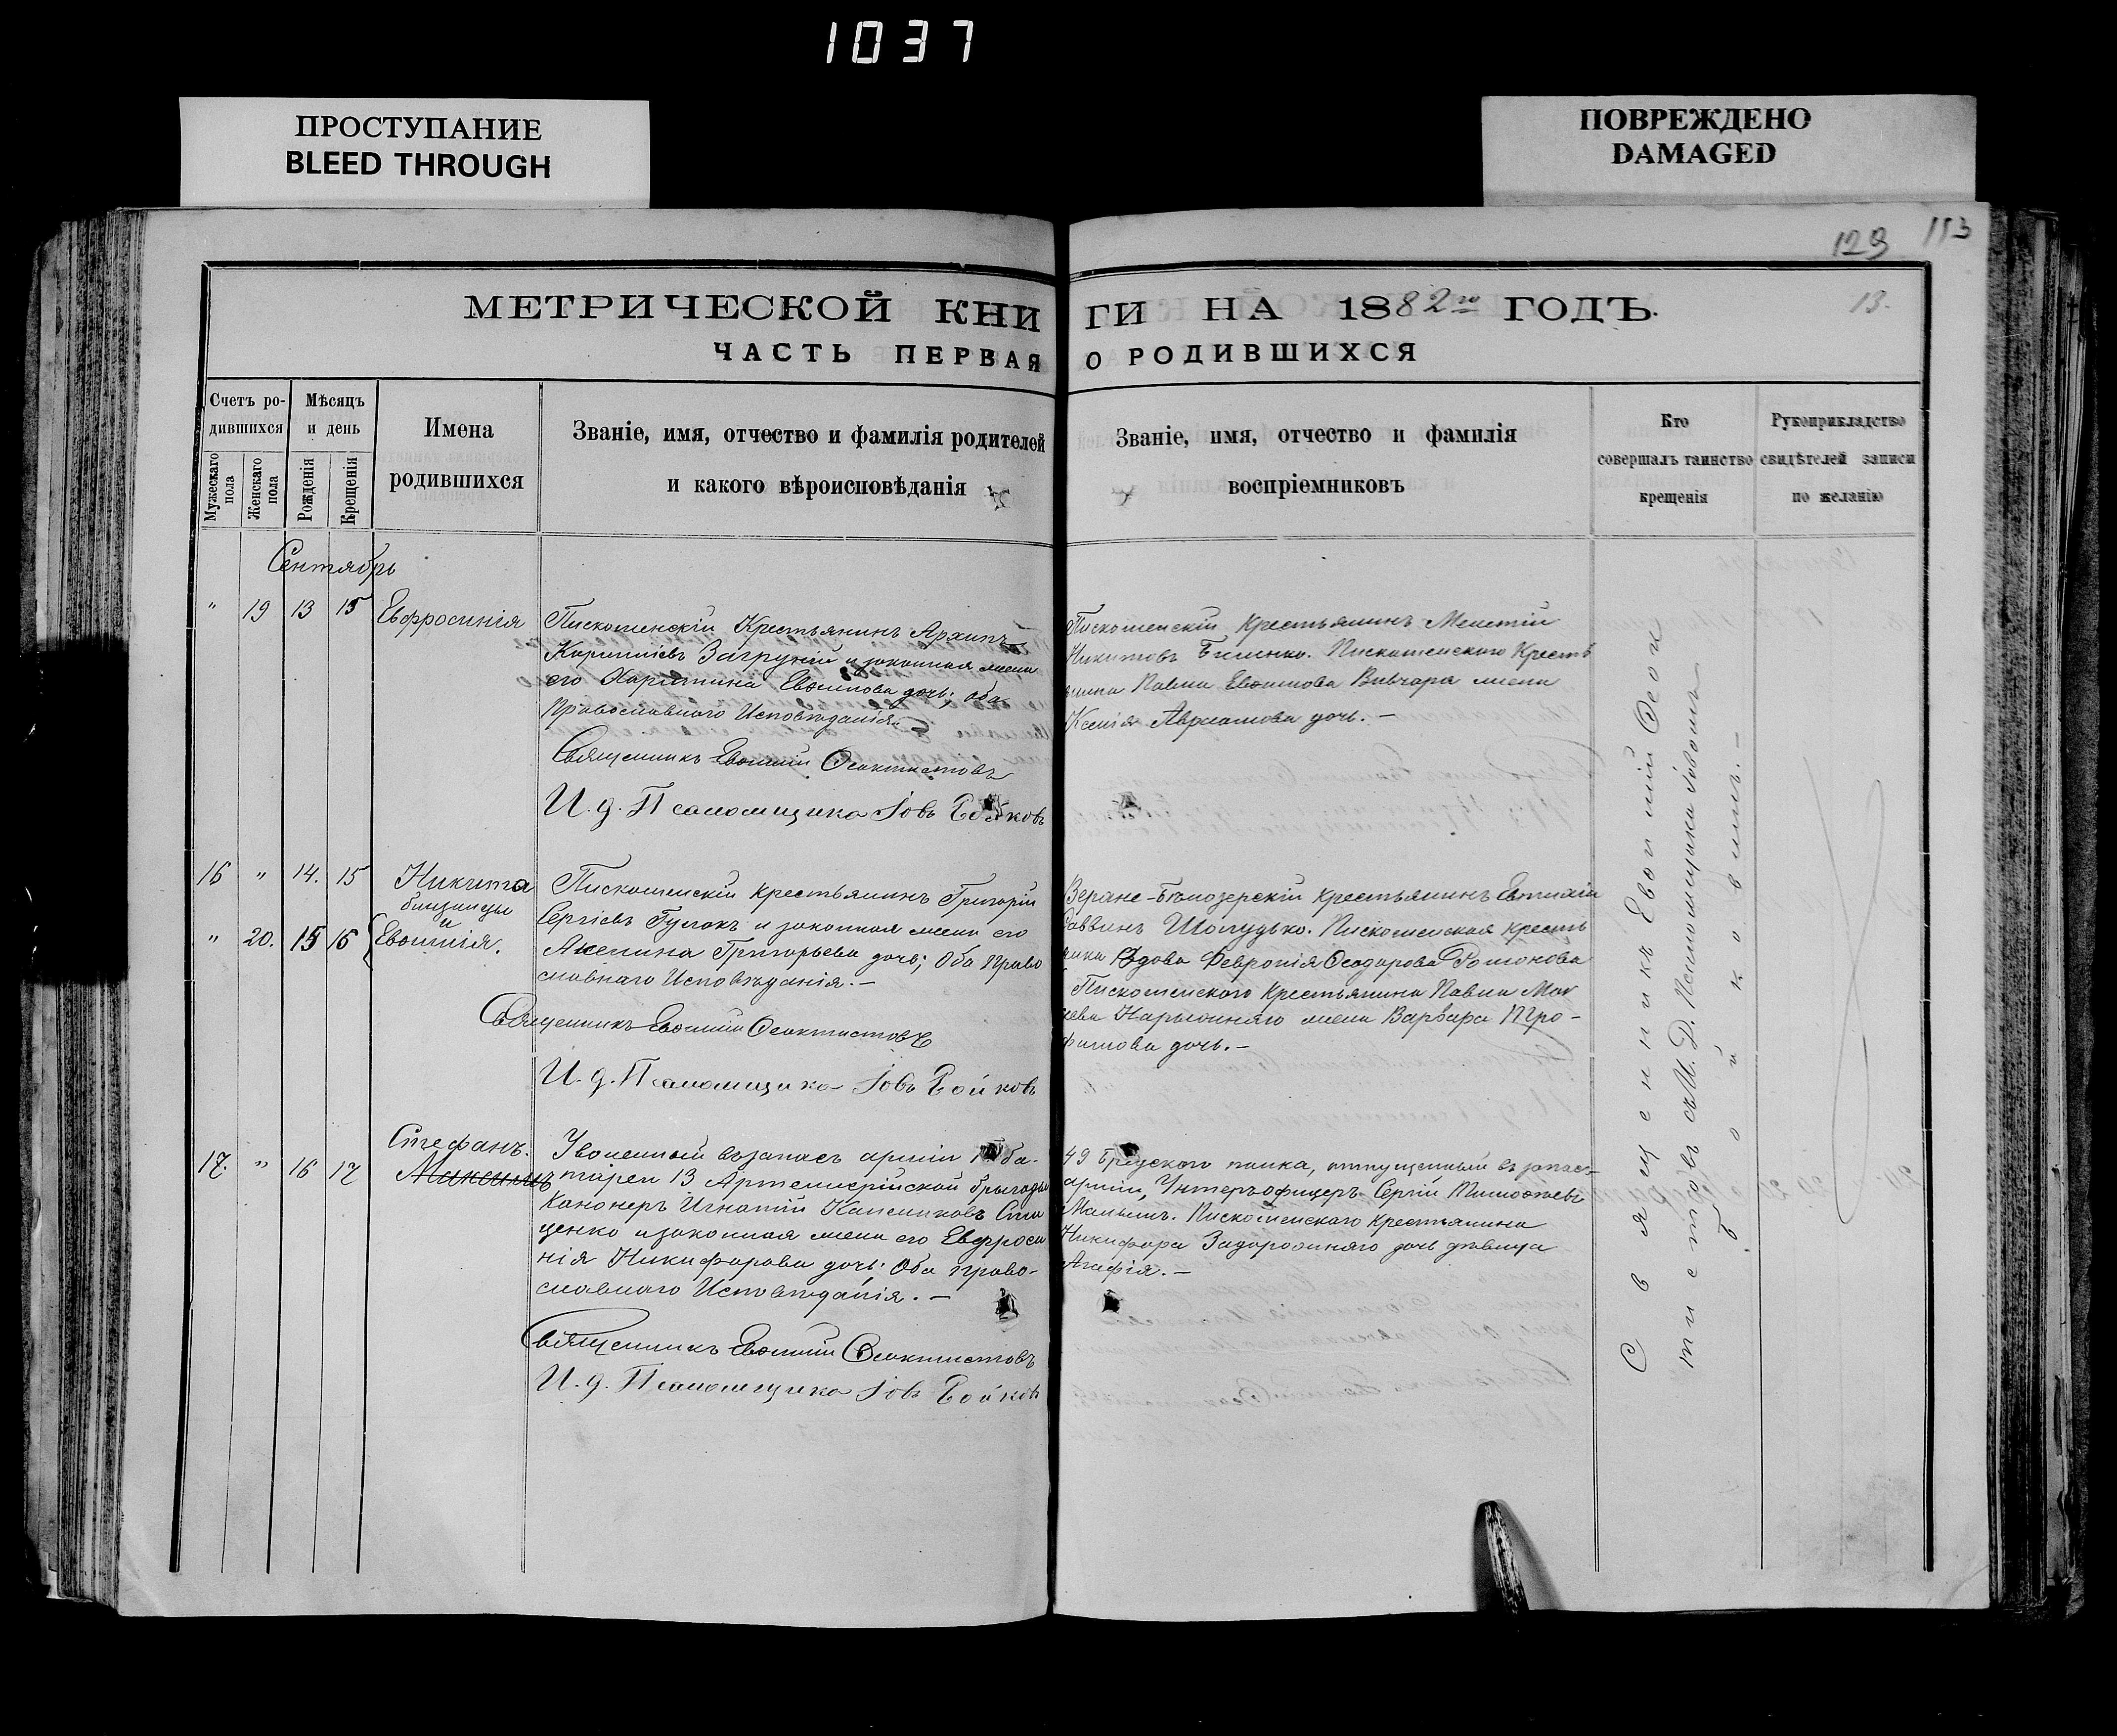 1037
ПРОСТУПАНИЕ
BLEED THROUGH
ПОВРЕЖДЕНО
DAMAGED
129 113
МЕТРИЧЕСКОЙ КНИГИ НА 1882го ГОДЪ.
13.
ЧАСТЬ ПЕРВАЯ О РОДИВШИХСЯ
Счетъ ро-
дившихся
Мужескаго пола
Женскаго пола
Мѣсяцъ
и день
Рожденія
Крещенія
Имена
родившихся
Званіе, имя, отчество и фамилія родителей
и какого вѣроисповѣданія
Званіе, имя, отчество и фамилія
воспріемниковъ
Кто
совершалъ таинство
крещенія
Рукоприкладство
свидѣтелей записи
по желанію
Сентябрь
" 19 13 15 Евфросинія
Пискошенскій Крестьянинъ Архипъ
Загруній и законная жена
его Харитина Евѳимова дочь; оба
Православнаго Исповѣданія.
Священникъ Евѳимій Ѳеоктистовъ
И. д. Псаломщика Іовъ Бойковъ
Пискошенскій Крестьянинъ Мелетій
Никитовъ Биленко. Пискошенского Кресть
янина Павла Евѳимова Вивчара жена
Ксенія дочь. –
16 " 14. 15 Никита
близнецы
и
" 20. 15 16 Евѳимія.
Пискошенскій крестьянинъ Григорій
Сергіевъ Гулакъ и законная жена его
Акелина Григорьева дочь; Оба Право
славнаго Исповѣданія. –
Священникъ Евѳимій Ѳеоктистовъ
И. д. Псаломщика Іовъ Бойковъ
Верхне-Бѣлозерскій крестьянинъ Евтихій
Саввинъ Шолудько. Пискошенская кресть
янка Вдова Февронія Ѳеодорова Романова
Пискошенского Крестьянина Павла
Нарыжняго жена Варвара Тро-
фимова дочь. –
17. " 16 17 Стефанъ.
Максимъ
Уволенный въ запасъ арміи ба-
тареи 13 Артелерійской бригады
Канонеръ Игнатій Ста
ценко и законная жена его Евфроси
нія Никифорова дочь; Оба право-
славнаго Исповѣданія. –
Священникъ Евѳимій Ѳеоктистовъ
И. д. Псаломщика Іовъ Бойковъ
49 Брестского полка, отпущенный въ запасъ
арміи, Унтеръофицеръ Сергій Тимоѳеевъ
Малышъ. Пискошенского крестьянина
Никифора Задорожняго дочь дѣвица
Агафія. –
Священникъ Евѳимій Ѳеок
тистовъ съ И. Д. Псаломщика Іовомъ
Бойковымъ. –